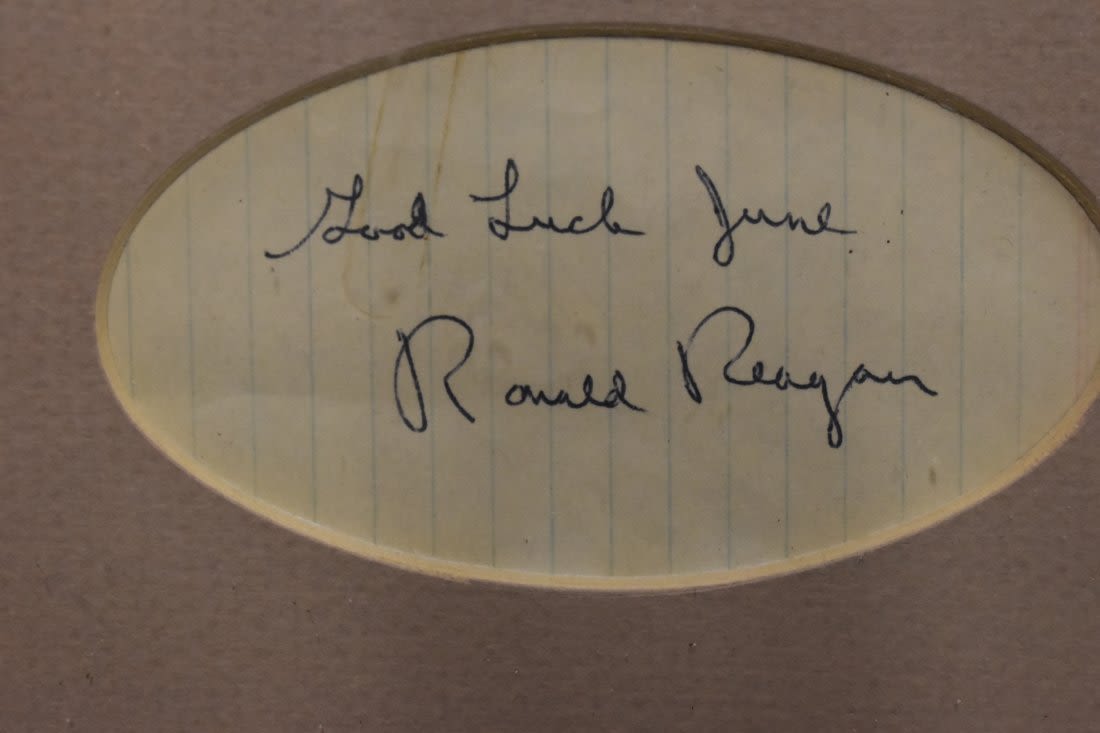 Good Luck June
Ronald Reagan